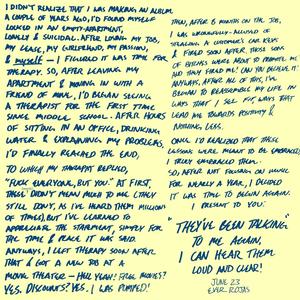 I DIDN'T REALIZE THAT I WAS MAKING AN ALBUM
A COUPLE OF YEARS AGO, I'D FOUND MYSELF
LOCKED IN AN EMPTY APARTMENT,
LONELY & SUICIDAL. AFTER LOSING MY JOB,
MY LEASE, MY GIRLFRIEND, MY PASSION,
& MYSELF — I FIGURED IT WAS TIME FOR
THERAPY. SO, AFTER LEAVING MY
APARTMENT & MOVING IN WITH A
FRIEND OF MINE, I'D BEGAN SEEING
A THERAPIST FOR THE FIRST TIME
SINCE MIDDLE SCHOOL. AFTER HOURS
OF SITTING IN AN OFFICE, DRINKING
WATER & EXPLAINING MY PROBLEMS,
I'D FINALLY REACHED THE END,
TO WHICH MY THERAPIST REPLIED,
"FUCK EVERYONE, BUT YOU." AT FIRST,
THESE DIDN'T MEAN MUCH TO ME (THEY
STILL DON'T, AS I'VE HEARD THEM MILLIONS
OF TIMES), BUT I'VE LEARNED TO
APPRECIATE THE STATEMENT, SIMPLY FOR
THE TIME & PLACE IT WAS SAID.
ANYWAYS, I LEFT THERAPY SOON AFTER
THAT & GOT A NEW JOB AT A
MOVIE THEATER — HELL YEAH! FREE MOVIES?
YES. DISCOUNTS? YES. I WAS PUMPED!
THEN, AFTER 8 MONTHS ON THE JOB,
I WAS WRONGFULLY ACCUSED OF
STEALING A CUSTOMER'S CAR KEYS
& FIRED SOON AFTER. THOSE SONS
OF BITCHES WERE ABOUT TO PROMOTE ME
AND THEY FIRED ME! CAN YOU BELIEVE IT?
ANYWAYS, AFTER ALL OF THIS, I'VE
BEGUN TO REASSEMBLE MY LIFE IN
WAYS THAT I SEE FIT, WAYS THAT
LEAD ME TOWARDS POSITIVITY &
NOTHING LESS.
ONCE I'D REALIZED THAT THESE
LESSONS WERE MEANT TO BE EMBRACED,
I TRULY EMBRACED THEM.
SO, AFTER NOT FOCUSING ON MUSIC
FOR NEARLY A YEAR, I DECIDED
IT WAS TIME TO BEGIN AGAIN.
I PRESENT TO YOU:
"THEY'VE BEEN TALKING"
TO ME AGAIN,
I CAN HEAR THEM
LOUD AND CLEAR!
JUNE 23
EVER ROJAS